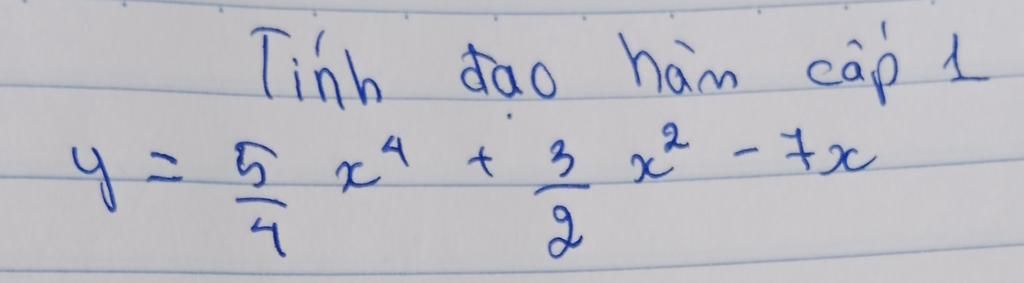 Tính đạo hàm cấp 1
y = 5/4 x⁴ + 3/2 x² - 7x